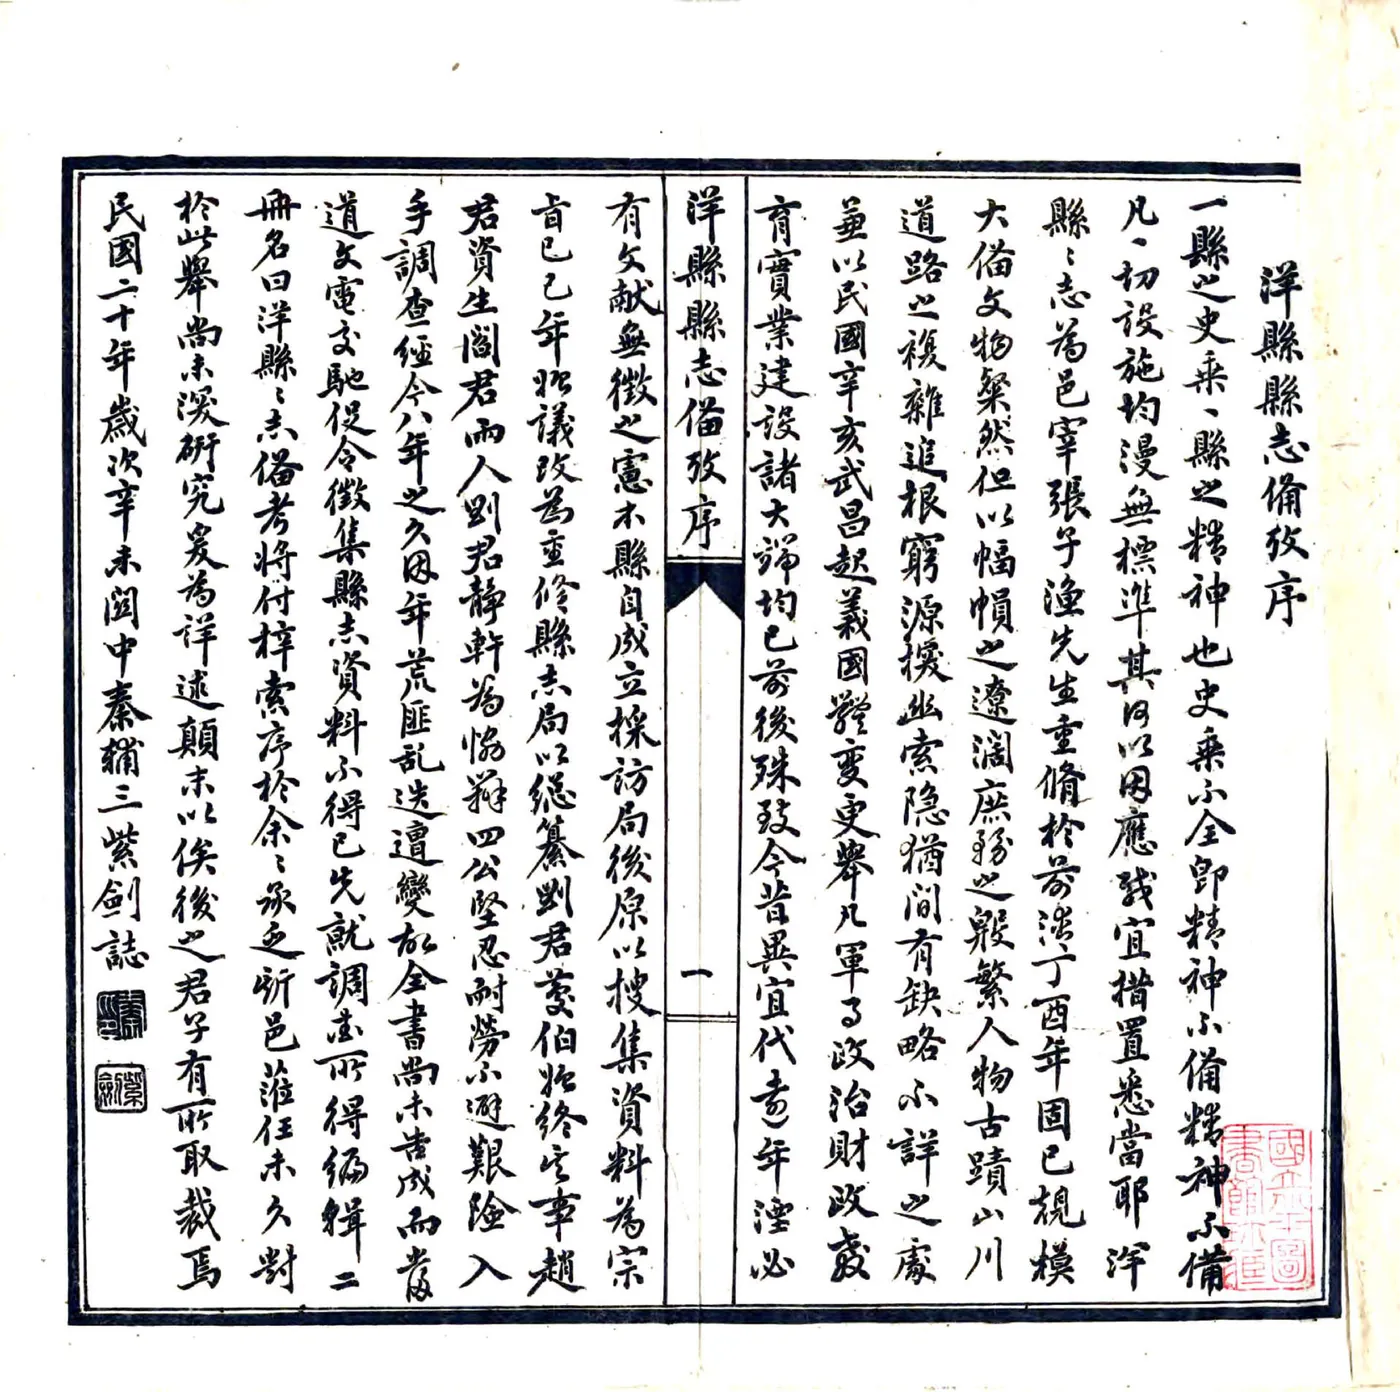 洋縣縣志備攷序
一縣之史乘、縣之精神也史乘不全即精神不備精神不備
凡、切設施均漫無標準其何以因應咸宜措置悉當耶洋
縣〻志為邑宰張子漁先生重脩於前清丁酉年固已規模
大備文物粲然但以幅幀之遼濶庶務之殷繁人物古蹟山川
道路之複雜追根窮源探幽索隐猶間有缺略不詳之處
兼以民國辛亥武昌起義國體变更舉凡軍事政治財政教
育實業建設諸大端均已前後殊致今昔異宜代遠年湮必
洋縣縣志備攷序
一
有文献無徵之憲本縣自成立採訪局後原以搜集資料為宗
旨己巳年始議改為重修縣志局以總纂劉君菱伯始終其事趙
君資生閻君雨人劉君靜軒為協辦四公堅忍耐勞不避艱險入
手調查經今八年之久因年荒匪乱迭遭變故全書尚未告成而當
道文電交馳促令徵集縣志資料不得已先就調查所得編輯二
冊名曰洋縣〻志備考將付梓索序於余〻承乏斯邑蒞任未久對
於此舉尚未深研究爰為詳述顛末以俟後之君子有所取裁焉
民國二十年歲次辛未関中秦輔三紫劍誌